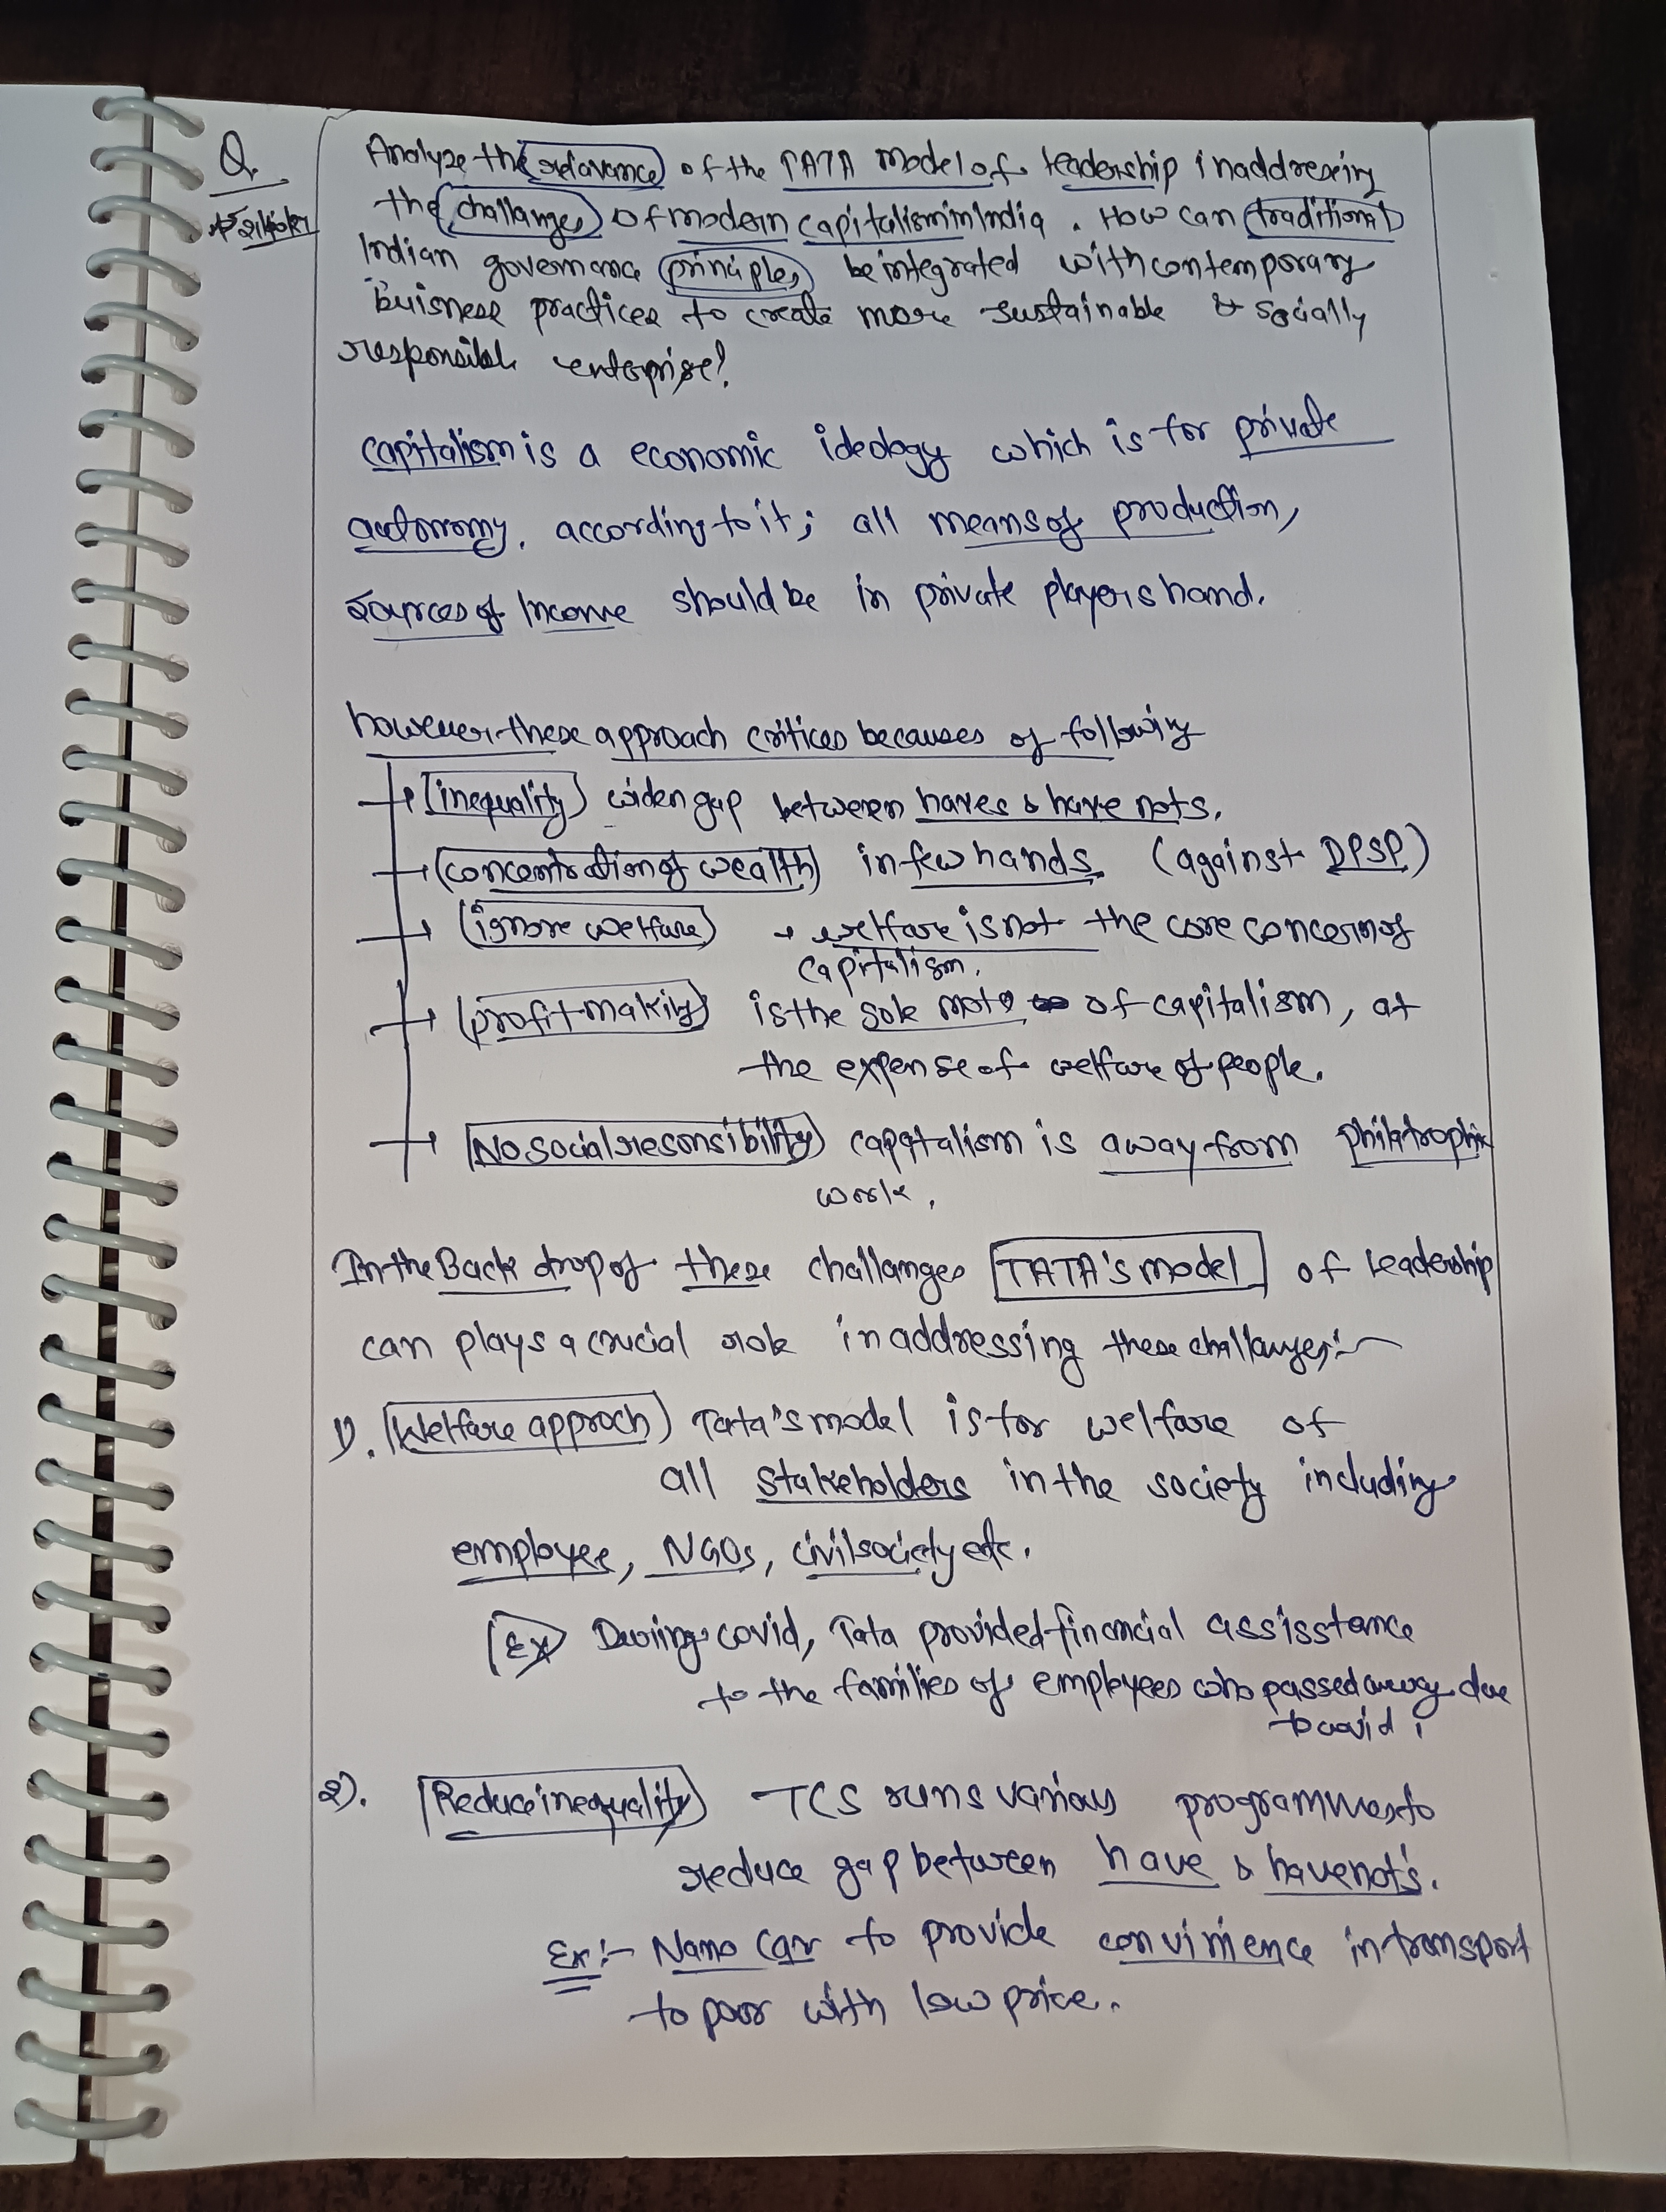 Q.
Analyze the relavance of the TATA Model of leadership in addressing
the challanges of modern capitalism in India. How can traditional
Indian governance principles be integrated with contemporary
buisness practices to create more sustainable & socially
responsible enterprise?
capitalism is a economic ideology which is for private
autonomy. according to it; all means of production,
sources of Income should be in private players hand.
however these approach critices becauses of following
inequality widen gap between haves & have nots.
concentration of wealth in few hands (against DPSP)
ignore welfare → welfare is not the core concern of
capitalism.
profit making is the sole moto of capitalism, at
the expense of welfare of people.
No social resonsibility capatalism is away from philatrophic
work.
In the Back drop of these challanges TATA's model of leadership
can plays a crucial role in addressing these challanges:-
1). Welfare approch Tata's model is for welfare of
all stakeholders in the society including
employee, NGOs, civil society etc.
Ex During covid, Tata provided financial assisstance
to the families of employees who passed away due
to covid.
2). Reduce inequality TCS runs various programmes to
reduce gap between have & have not's.
Ex:- Nano Car to provide convinience in transport
to poor with low price.